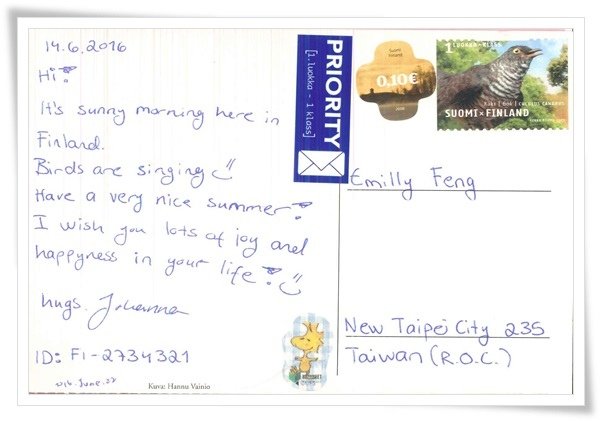 14.6.2016
Hi!
It's sunny morning here in
Finland.
Birds are singing
Have a very nice summer!
I wish you lots of joy and
happyness in your life!
hugs. Johanna
ID: FI-2734321
016.June.22
Kuva: Hannu Vainio
PRIORITY
[1.luokka - 1 klass]
Suomi
Finland
0,10€
1 LUOKKA·KLASS
Käki | Gök | CUCULUS CANORUS
SUOMI·FINLAND
Emilly Feng
New Taipei City 235
Taiwan (R.O.C.)